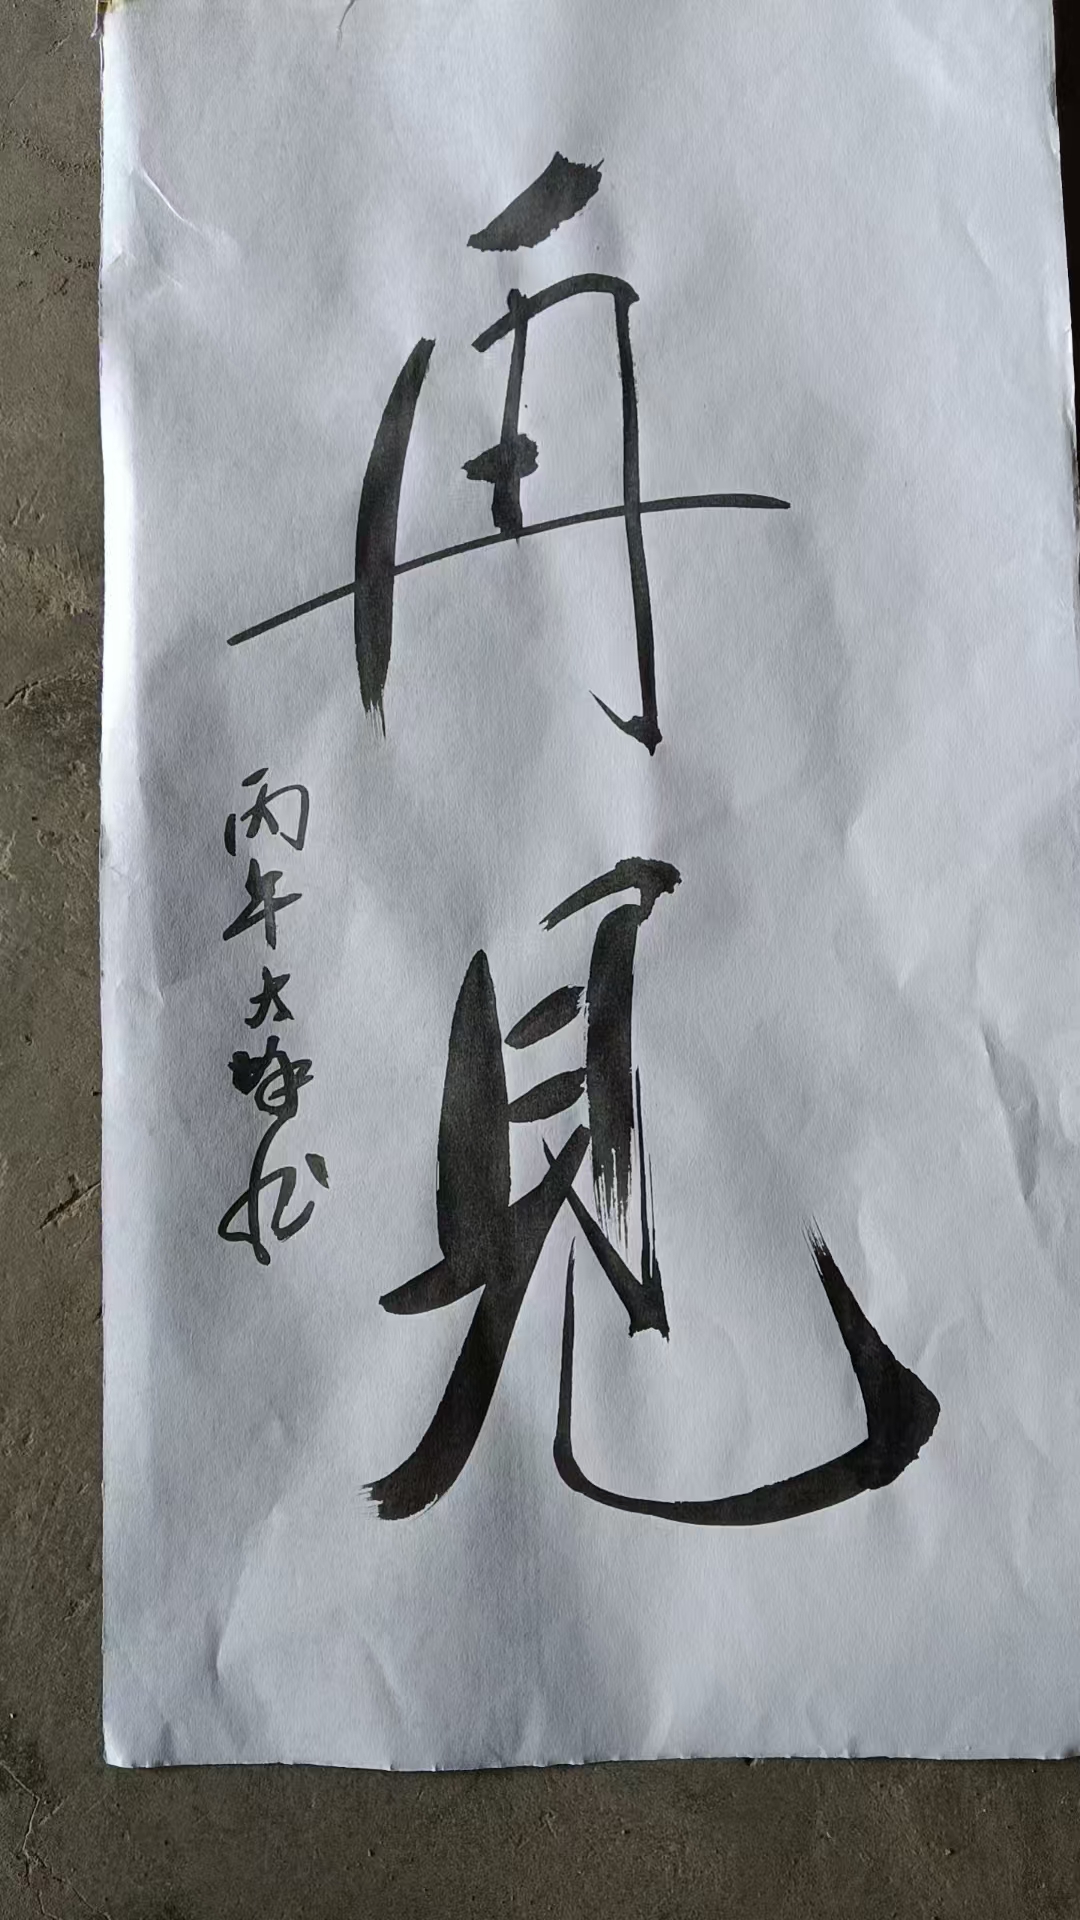 再見
丙午大峰书